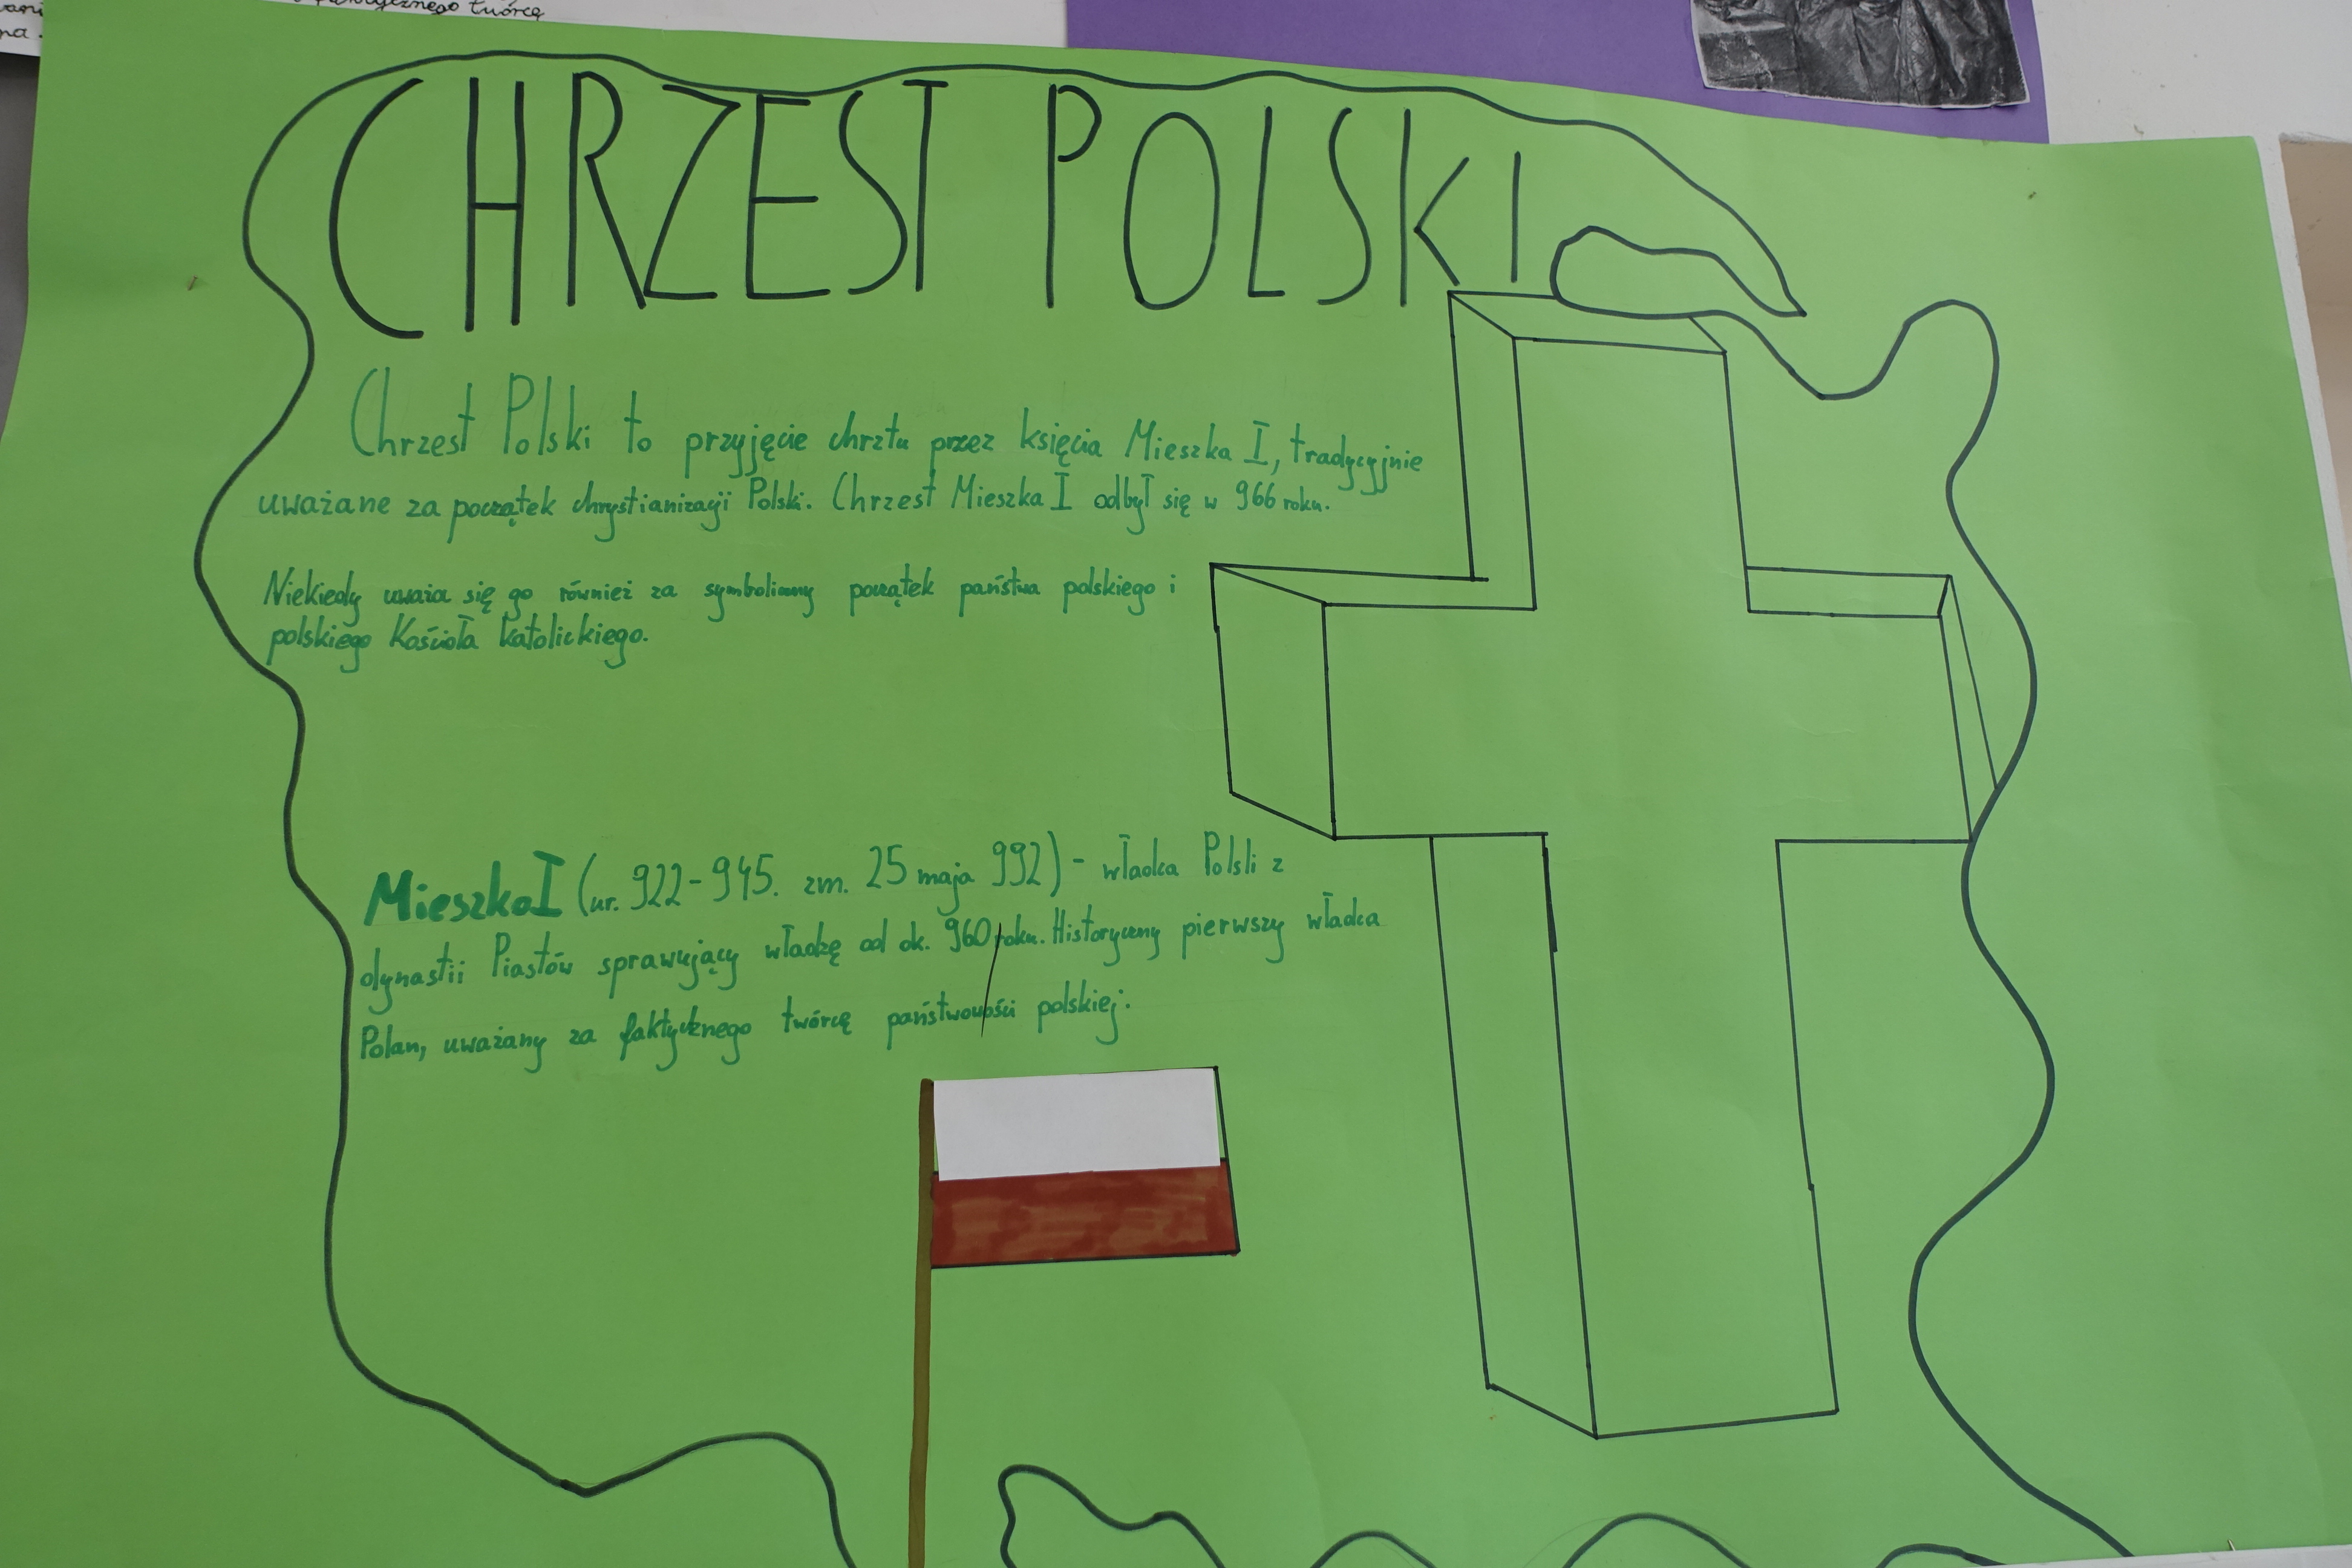 faktycznego twórcę
CHRZEST POLSKI
Chrzest Polski to przyjęcie chrztu przez księcia Mieszka I, tradycyjnie
uważane za początek chrystianizacji Polski. Chrzest Mieszka I odbył się w 966 roku.
Niekiedy uważa się go również za symboliczny początek państwa polskiego i
polskiego Kościoła katolickiego.
Mieszko I (ur. 922-945. zm. 25 maja 992) - władca Polsli z
dynastii Piastów sprawujący władzę od ok. 960 roku. Historyczny pierwszy władca
Polan, uważany za faktycznego twórcę państwowości polskiej.